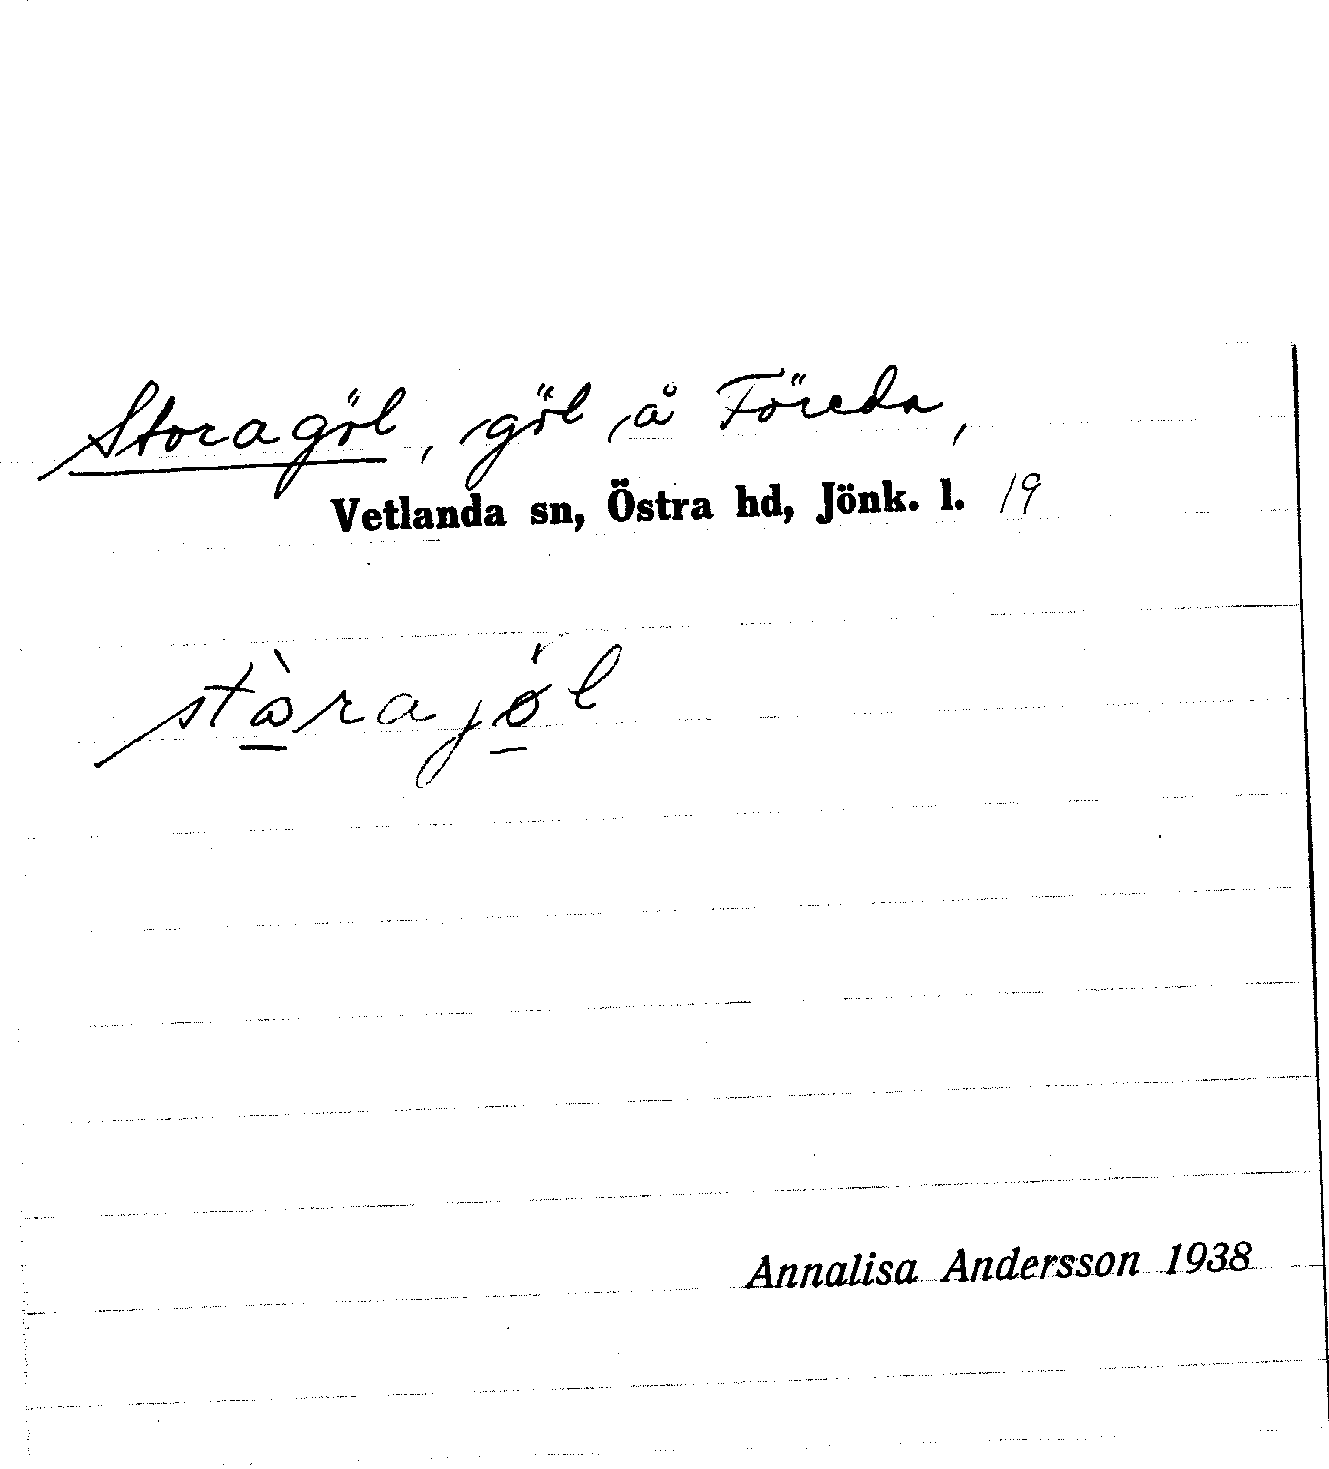 Storagöl, göl å Föreda,
Vetlanda sn, Östra hd, Jönk. l. 19
stɷ̀rajøl
Annalisa Andersson 1938